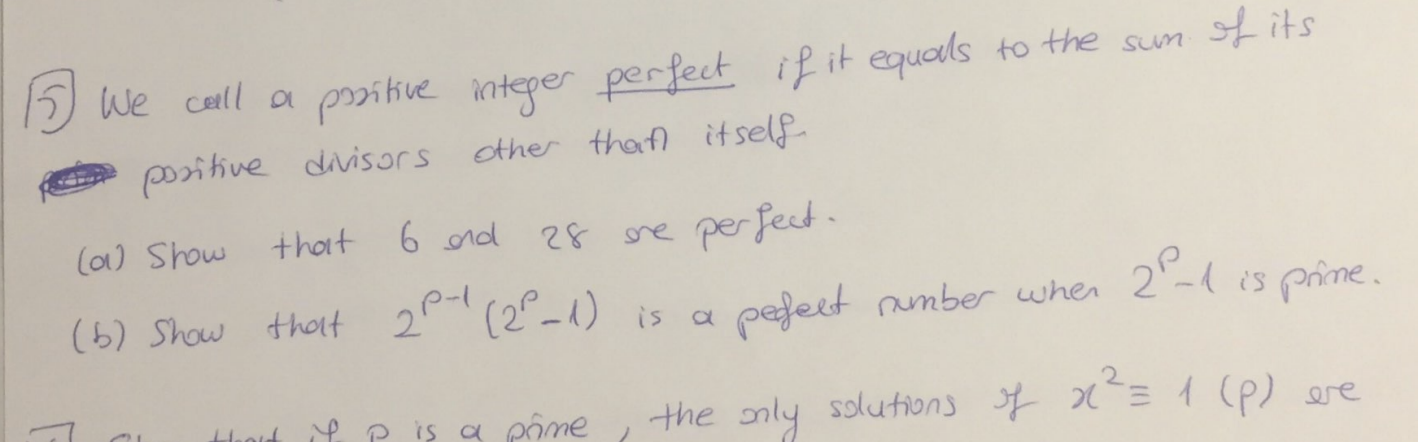 5 We call a positive integer perfect if it equals to the sum of its
positive divisors other than itself.
(a) Show that 6 and 28 are perfect.
(b) Show that 2^{p-1} (2^p-1) is a pefect number when 2^p-1 is prime.
that if p is a prime, the only solutions of x^2 ≡ 1 (p) are